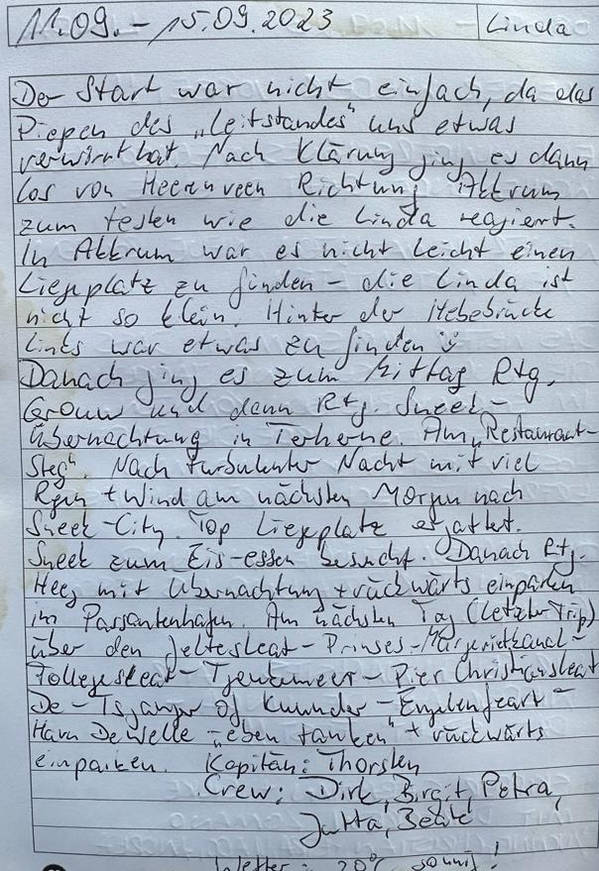 11.09. – 15.09.2023 Linda
Der Start war nicht einfach, da das
Piepen des „Leitstandes" uns etwas
verwirrt hat. Nach Klärung ging es dann
los von Heerenveen Richtung Akkrum
zum testen wie die Linda reagiert.
In Akkrum war es nicht leicht einen
Liegeplatz zu finden – die Linda ist
nicht so klein. Hinter der Hebebrücke
links war etwas zu finden
Danach ging es zum Mittag Rtg.
Grouw und dann Rtg. Sneek –
Übernachtung in Terherne. Am „Restaurant-
Steg". Nach turbulenter Nacht mit viel
Regen + Wind am nächsten Morgen nach
Sneek-City. Top Liegeplatz ergattert.
Sneek zum Eis-essen besucht. Danach Rtg.
Heeg mit Übernachtung + rückwärts einparken
im Passantenhafen. Am nächsten Tag (letzter Trip)
über den Jeltesleat – Prinses-Margrietkanal –
Follegasleat – Tjeukemeer – Pier Christiansleat
De – Tsjonger of Kuunder – Engelenfeart –
Haven De Welle – „eben tanken" + rückwärts
einparken. Kapitän: Thorsten
Crew: Dirk, Birgit, Petra,
Jutta, Beate
Wetter: 20° sonnig!